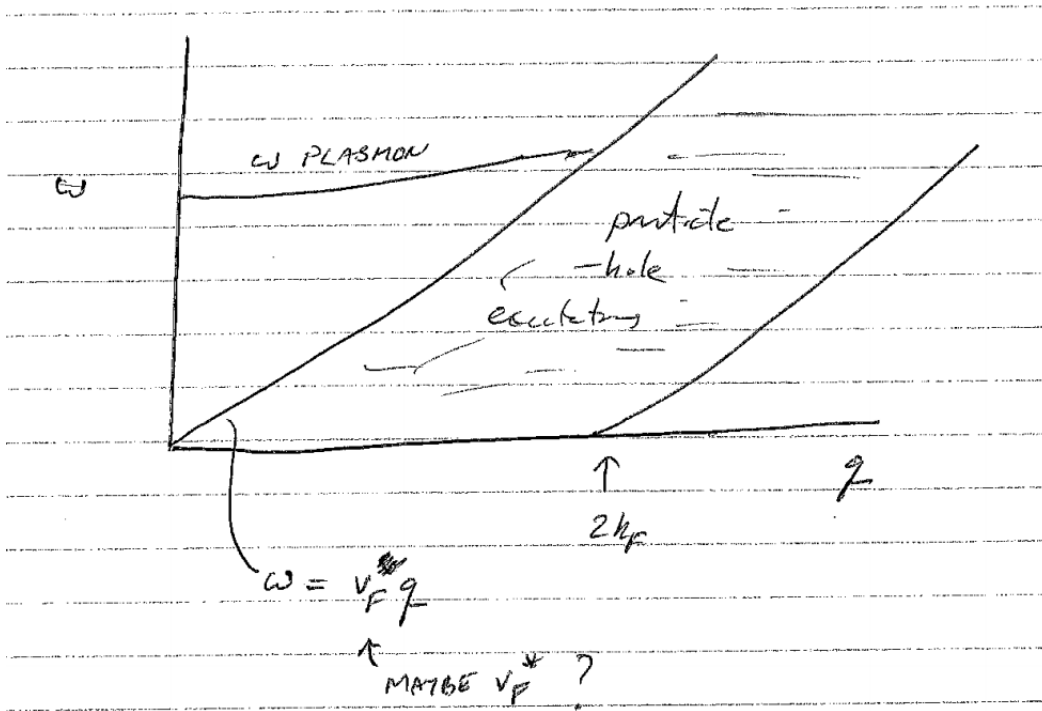 ω PLASMON
ω
particle
-hole
excitations
q
↑
2k_F
ω = v_F q
↑
MAYBE v_F* ?